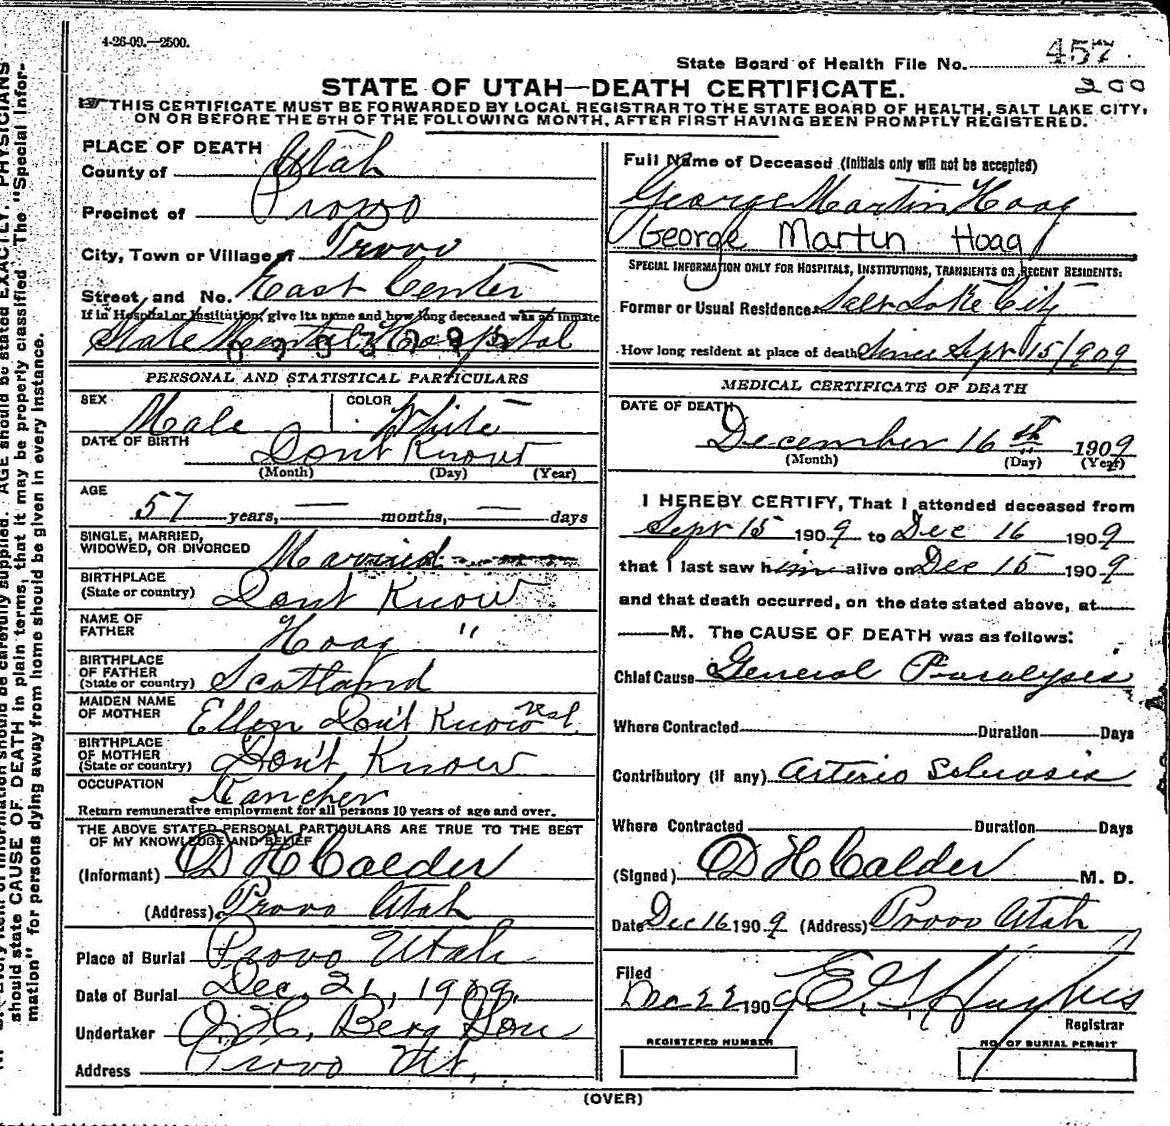 4-26-09.—2500.
State Board of Health File No. 457
200
STATE OF UTAH—DEATH CERTIFICATE.
THIS CERTIFICATE MUST BE FORWARDED BY LOCAL REGISTRAR TO THE STATE BOARD OF HEALTH, SALT LAKE CITY,
ON OR BEFORE THE 5TH OF THE FOLLOWING MONTH, AFTER FIRST HAVING BEEN PROMPTLY REGISTERED.
PLACE OF DEATH
County of Utah
Precinct of Provo
City, Town or Village of Provo
Street and No. East Center
If in Hospital or Institution, give its name and how long deceased was an inmate
State Mental Hospital
PERSONAL AND STATISTICAL PARTICULARS
SEX Male
COLOR White
DATE OF BIRTH Don't Know
(Month) (Day) (Year)
AGE
57 years, — months, — days
SINGLE, MARRIED,
WIDOWED, OR DIVORCED Married
BIRTHPLACE
(State or country) Don't Know
NAME OF
FATHER Hoag "
BIRTHPLACE
OF FATHER
(State or country) Scotland
MAIDEN NAME
OF MOTHER Ellen Don't Know rest
BIRTHPLACE
OF MOTHER
(State or country) Don't Know
OCCUPATION Rancher
Return remunerative employment for all persons 10 years of age and over.
THE ABOVE STATED PERSONAL PARTICULARS ARE TRUE TO THE BEST
OF MY KNOWLEDGE AND BELIEF
(Informant) D H Calder
(Address) Provo Utah
Place of Burial Provo Utah
Date of Burial Dec. 21, 1909.
Undertaker Berg Son
Address Provo Ut.
Full Name of Deceased (Initials only will not be accepted)
George Martin Hoag
George Martin Hoag
SPECIAL INFORMATION ONLY FOR HOSPITALS, INSTITUTIONS, TRANSIENTS OR RECENT RESIDENTS:
Former or Usual Residence Salt Lake City
How long resident at place of death Since Sept 15/909
MEDICAL CERTIFICATE OF DEATH
DATE OF DEATH
December 16th 1909
(Month) (Day) (Year)
I HEREBY CERTIFY, That I attended deceased from
Sept 15 1909 to Dec 16 1909
that I last saw him alive on Dec 15 1909
and that death occurred, on the date stated above, at
M. The CAUSE OF DEATH was as follows:
Chief Cause General Paralysis
Where Contracted Duration Days
Contributory (if any) Arterio Sclerosis
Where Contracted Duration Days
(Signed) D H Calder M. D.
Date Dec 16 1909 (Address) Provo Utah
Filed
Dec 22 1909 E. G. Hughes
Registrar
REGISTERED NUMBER
NO. OF BURIAL PERMIT
(OVER)
should be carefully supplied. AGE should be stated EXACTLY. PHYSICIANS
should state CAUSE OF DEATH in plain terms, that it may be properly classified. The "Special Infor-
mation" for persons dying away from home should be given in every instance.